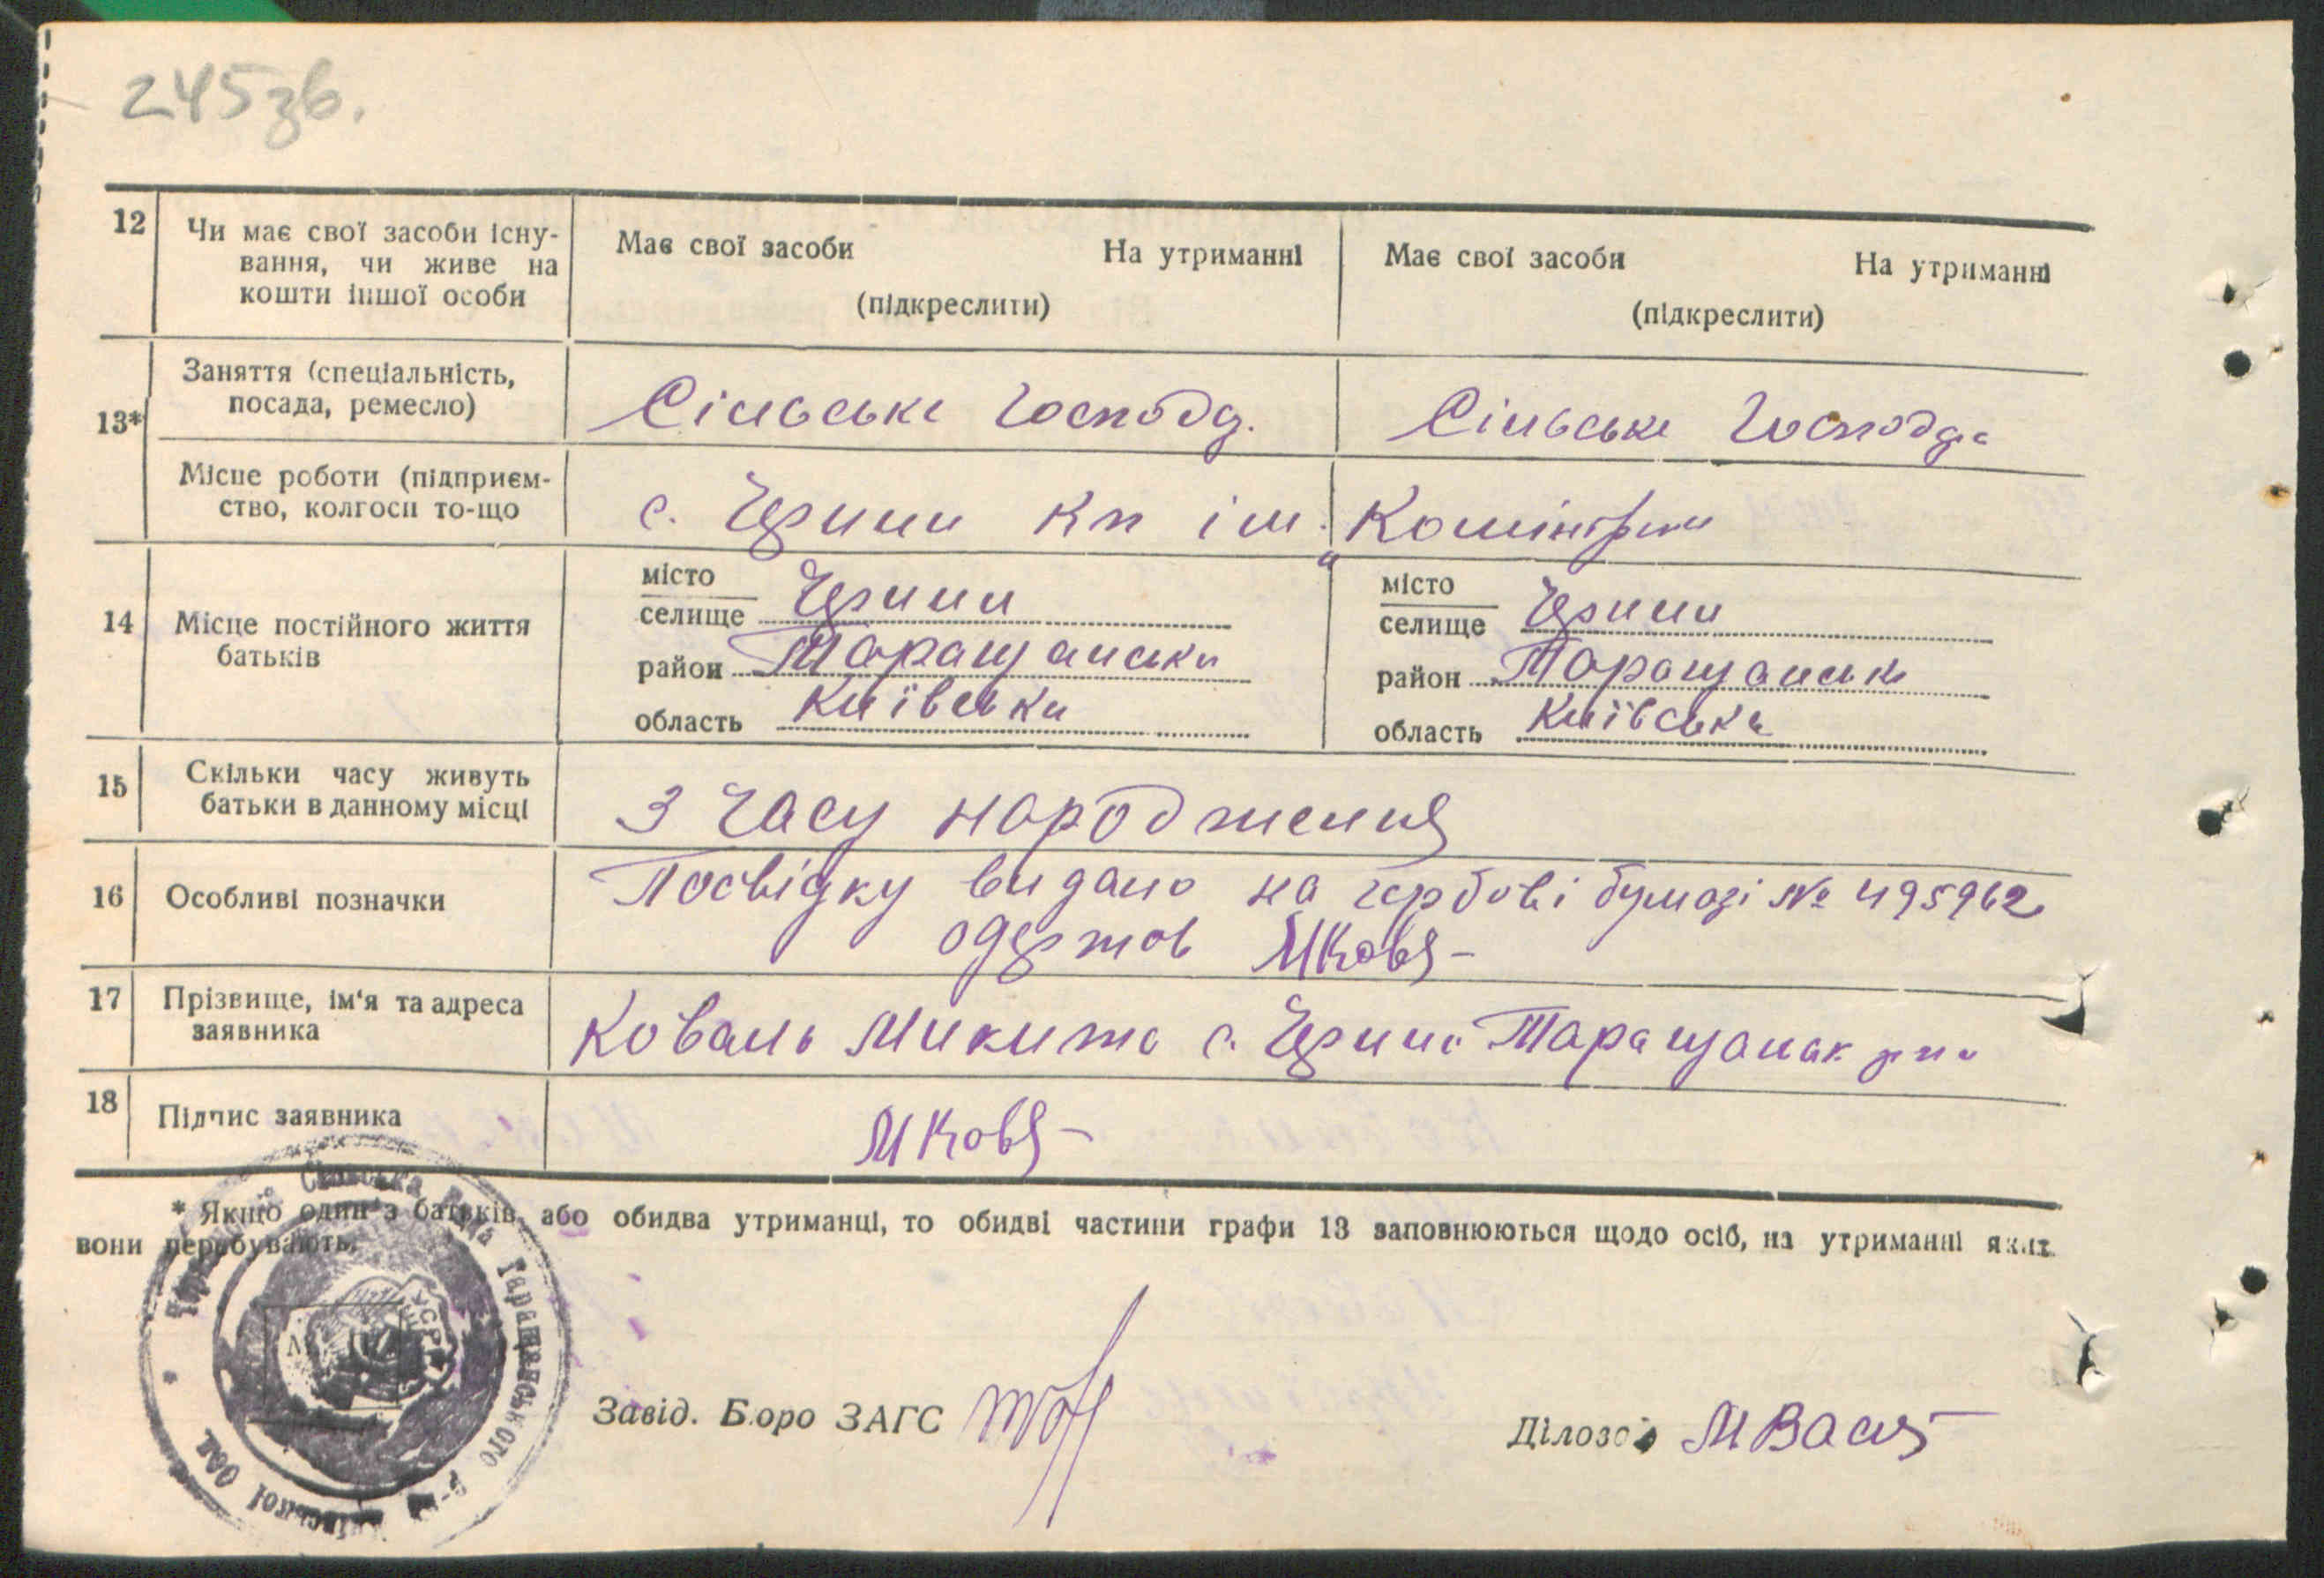 245зв.
12 Чи має свої засоби існу-
вання, чи живе на
кошти іншої особи
Має свої засоби На утриманні
(підкреслити)
Має свої засоби На утриманні
(підкреслити)
13*
Заняття (спеціальність,
посада, ремесло)
Сільське Господ.
Сільське Господ.
Місце роботи (підприєм-
ство, колгосп то-що
с. Чернин кп ім. Комінтерн
14 Місце постійного життя
батьків
місто
селище Чернин
район Таращански
область Київська
місто
селище Чернин
район Таращанськ
область Київська
15 Скільки часу живуть
батьки в данному місці
З часу народження
16 Особливі позначки
Посвідку видано на гербові бумазі № 495962
одержав МКов
17 Прізвище, ім'я та адреса
заявника
Коваль Микита с. Чернин Таращанск р-н
18 Підпис заявника
МКов
* Якщо один з батьків, або обидва утриманці, то обидві частини графи 13 заповнюються щодо осіб, на утриманні яких
вони перебувають.
Сільська Рада Таращанського р-н Київської обл
УСРР
Завід. Бюро ЗАГС
Діловод МВас